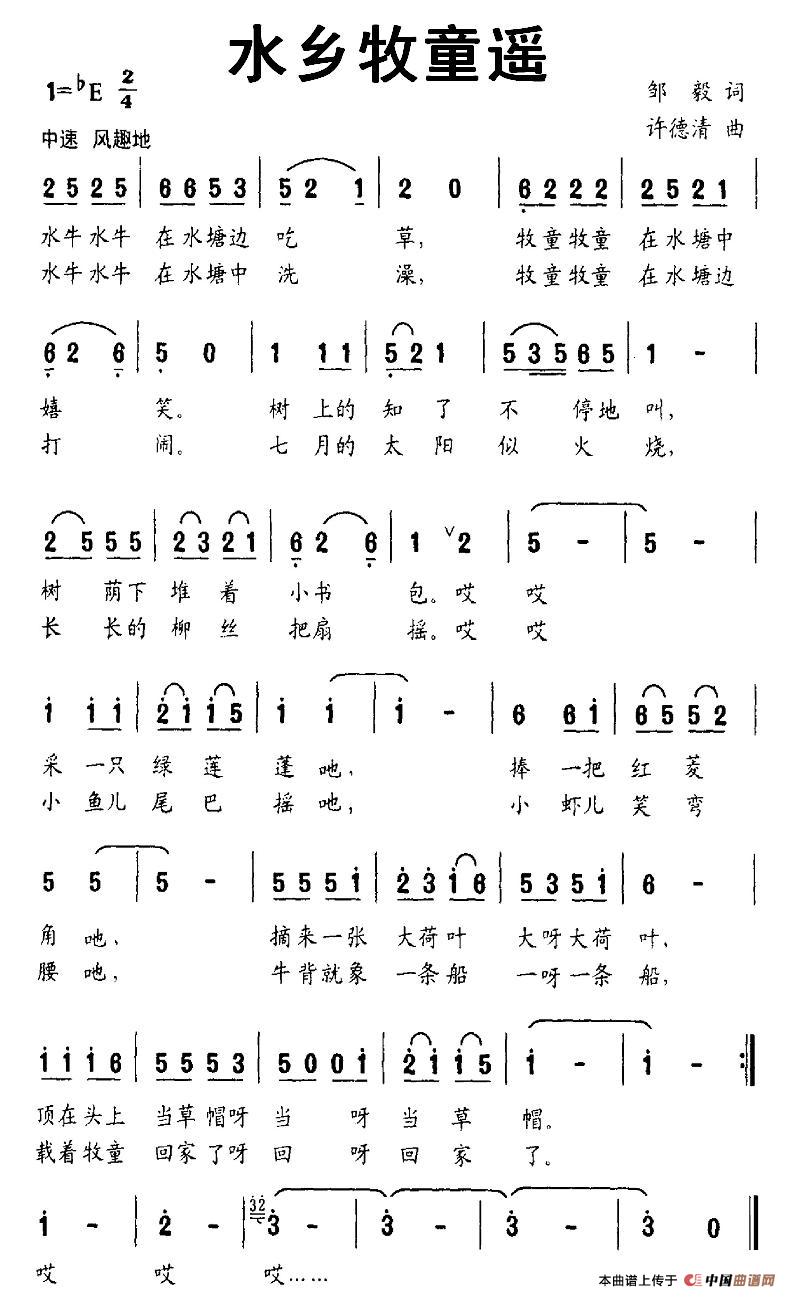 水乡牧童遥
1=♭E 2/4
邹 毅 词
许德清 曲
中速 风趣地
2 5 2 5 | 6 6 5 3 | 5 2 1 | 2 0 | 6 2 2 2 | 2 5 2 1 |
水牛水牛 在水塘边 吃 草, 牧童牧童 在水塘中
水牛水牛 在水塘中 洗 澡, 牧童牧童 在水塘边
6 2 6 | 5 0 | 1 1 1 | 5 2 1 | 5 3 5 6 5 | 1 - |
嬉 笑。 树 上的 知 了 不 停地 叫,
打 闹。 七 月的 太 阳 似 火 烧,
2 5 5 5 | 2 3 2 1 | 6 2 6 | 1 ∨ 2 | 5 - | 5 - |
树 荫下 堆 着 小书 包。哎 哎
长 长的 柳 丝 把扇 摇。哎 哎
1 1 1 | 2 1 1 5 | 1 1 | 1 - | 6 6 1 | 6 5 5 2 |
采 一只 绿 莲 蓬 吔, 捧 一把 红 菱
小 鱼儿 尾 巴 摇 吔, 小 虾儿 笑 弯
5 5 | 5 - | 5 5 5 1 | 2 3 1 6 | 5 3 5 1 | 6 - |
角 吔, 摘来一张 大荷叶 大呀大荷 叶,
腰 吔, 牛背就象 一条船 一呀一条 船,
1 1 1 6 | 5 5 5 3 | 5 0 0 1 | 2 1 1 5 | 1 - | 1 - :|
顶在头上 当草帽呀 当 呀 当 草 帽。
载着牧童 回家了呀 回 呀 回 家 了。
1 - | 2 - | 3 2 3 - | 3 - | 3 - | 3 0 |
哎 哎 哎……
本曲谱上传于 中国曲谱网